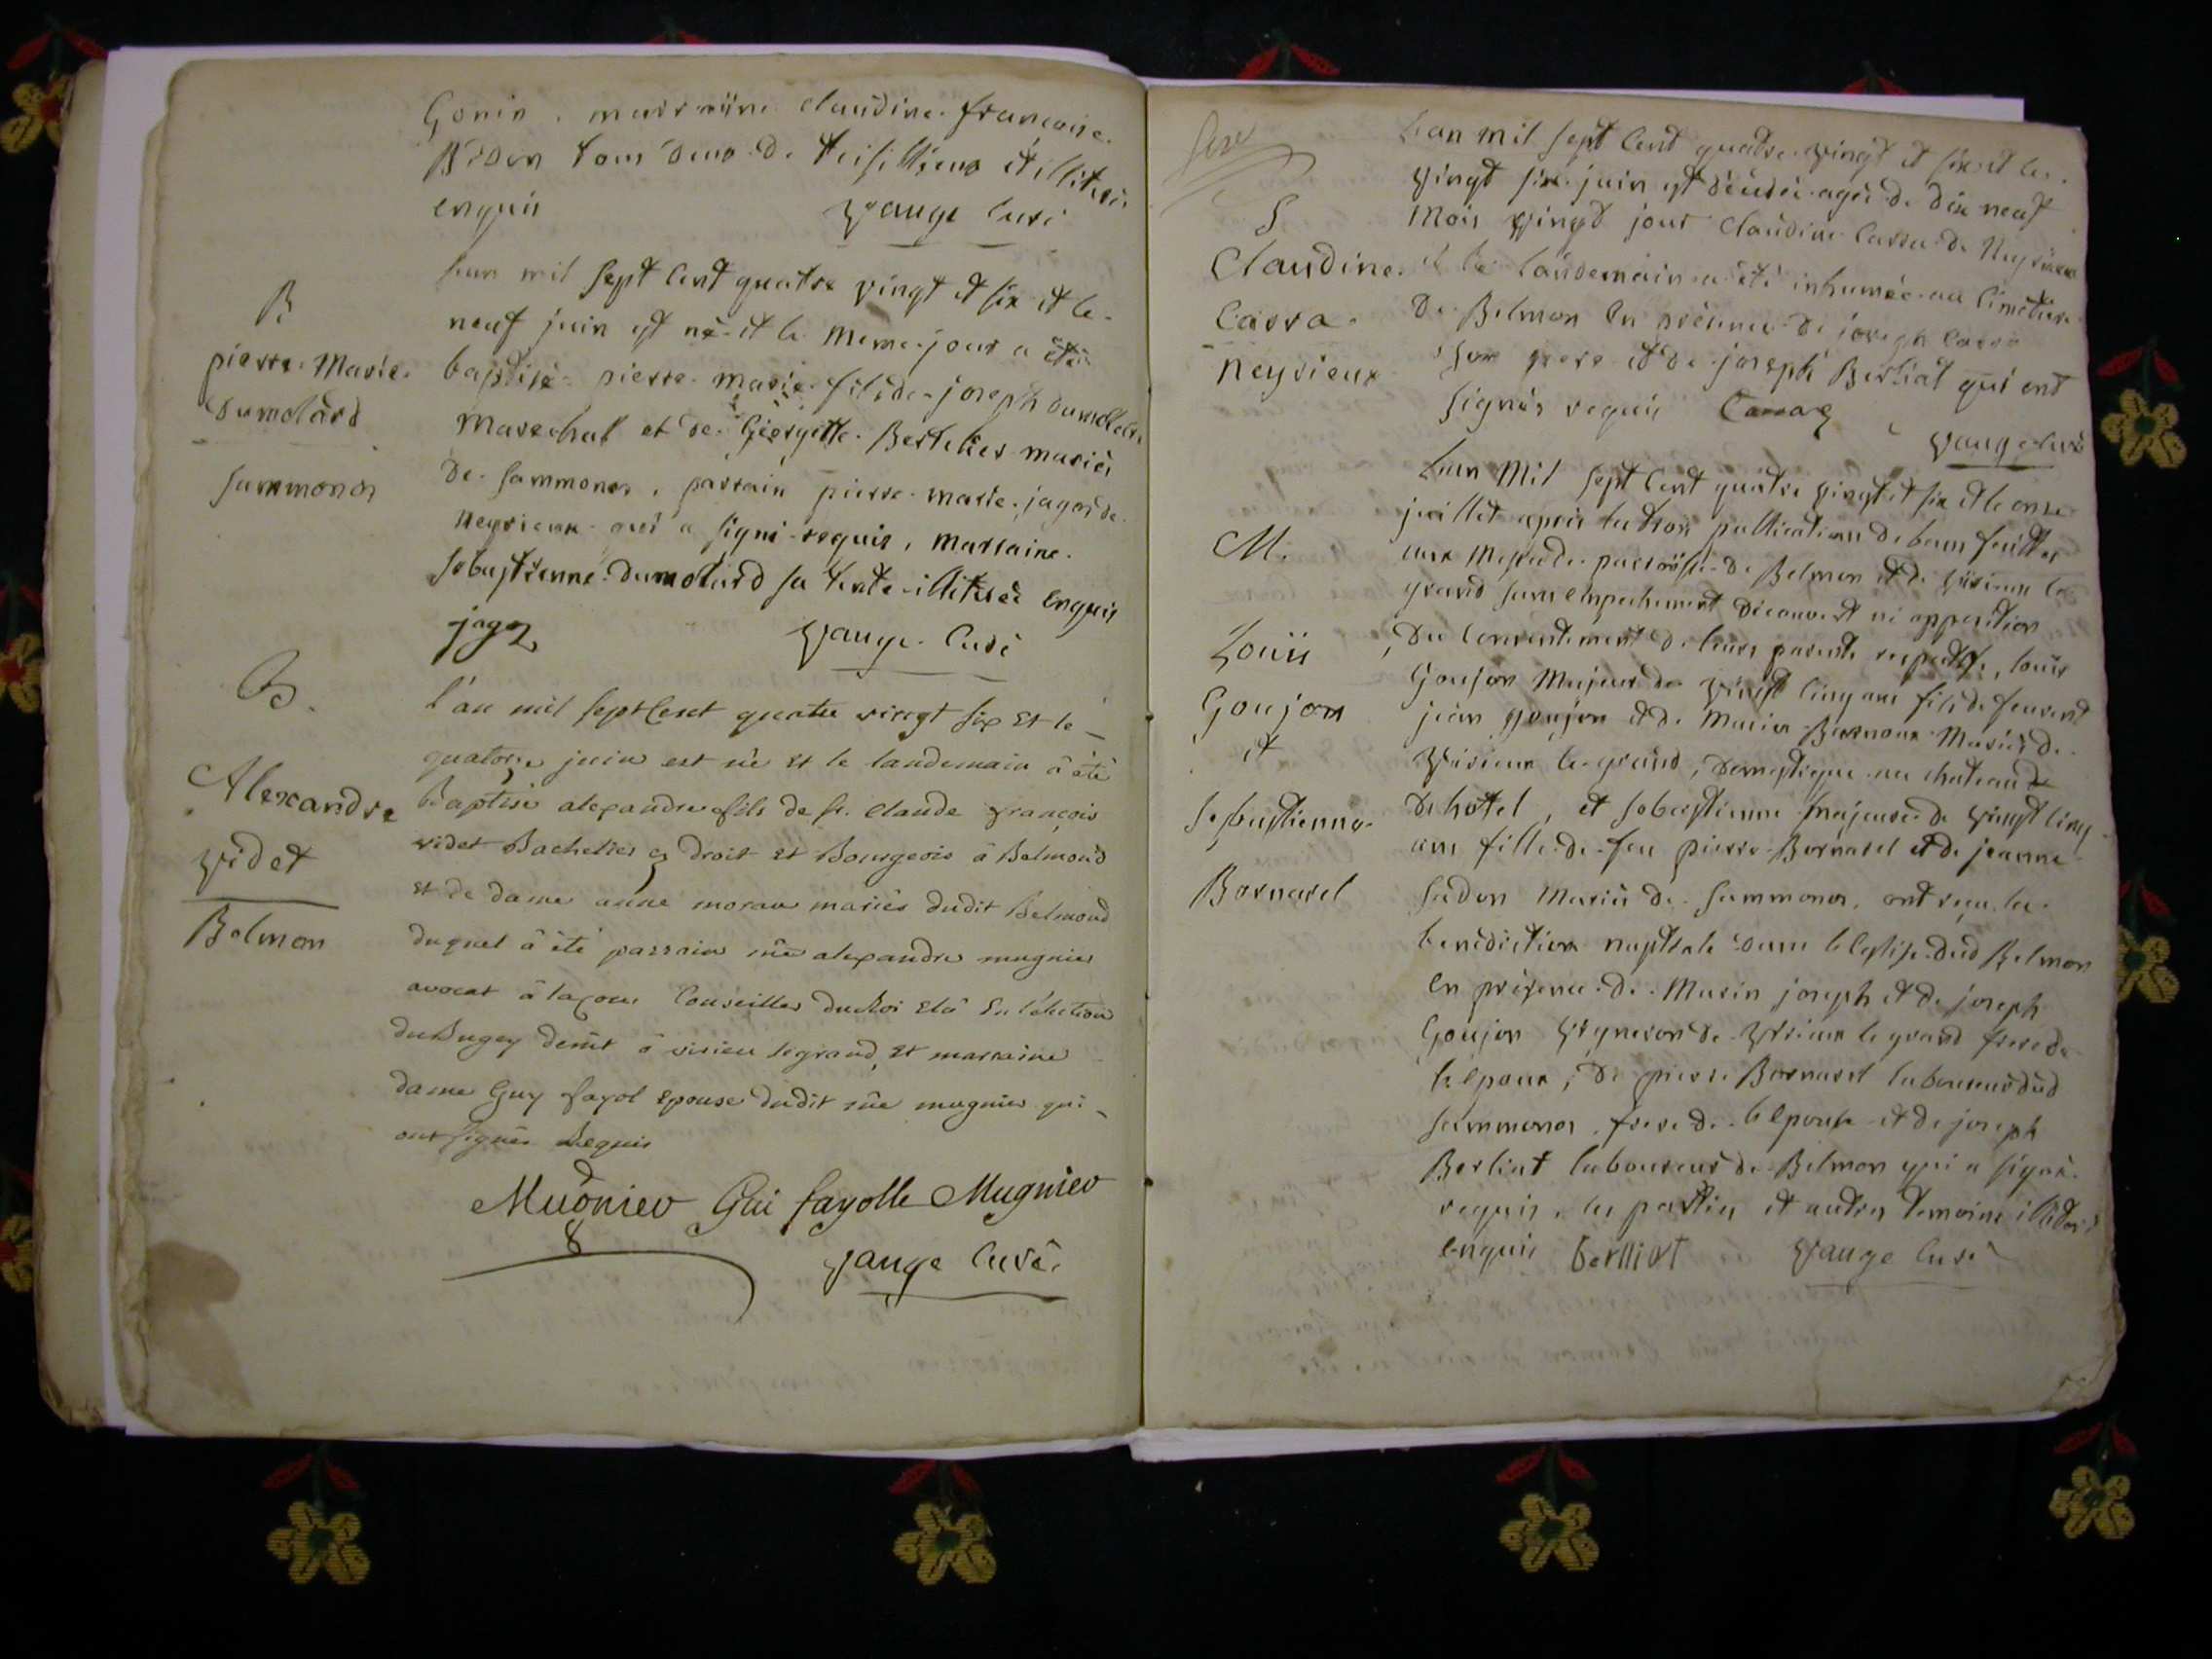 Gonin, marraine Claudine françoise
Bidon tous deux de illiteres
enquis Vauge curé
B
pierre Marie
Dumolard
Sammonos
Lan mil sept cent quatre vingt et six et le
neuf juin est né et le meme jour a été
baptisé pierre marie fils de joseph dumolard
marechal et de Géorgette Bertelier mariés
de Sammonos, parrain pierre marie jago de
neyrieux qui a signé requis, marraine
sebastienne dumolard sa tente illiterée enquis
jago Vauge curé
B.
Alexandre
Videt
Belmon
l'an mil sept Cent quatre vingt six Et le
quatorze juin est né et le landemain à été
Baptisé alexandre fils de sr. Claude françois
videt Bachelier en Droit et Bourgeois à Belmond
et de dame anne morau mariés dudit Belmond
duquel à été parrain me alexandre mugnier
avocat à la cour Conseiller du Roi En l'élection
du Bugey demt à virieu le grand, Et marraine
dame Guy fayol Epouse dudit me mugnier qui
ont signés Requis
Mugnier Gui fayolle Mugnier
Vauge Curé
S
Claudine
Carra
neyrieux
Lan mil sept cent quatre vingt et six et le
vingt six juin est décédée agée de dix neuf
mois vingt jour Claudine Carra de Neyrieux
et le landemain a été inhumée au cimetiere
de Belmon en présence de joseph Carra
son pere et de joseph Berliat qui ont
signés requis Carraz
Vauge curé
M.
Louis
Goujon
et
Sebastienne
Bornarel
Lan Mil sept cent quatre vingt et six et le onze
juillet après la trois publication de bans faittes
aux Messe de parroisse de Belmon et de Virieux le
grand sans empechement découvert ni opposition
du consentement de leurs parents respectifs, louis
Goujon Majeur de vingt cinq ans fils de
jean goujon et de Mariés de
Virieux le grand, domestique au chateau
dhotel, et sebastienne majeure de vingt cinq
ans fille de feu pierre Bornarel et de jeanne
Mariés de Sammonos, ont reçu la
benediction nuptiale dans leglise dud Belmon
en présence de Marin joseph et de joseph
Goujon Vigneron de Virieux le grand frere de
lepoux, de pierre Bornarel laboureur dud
Sammonos, frere de lepouse et de joseph
Berliat laboureur de Belmon qui a signé
requis, les parties et autres temoins illiterés
enquis berlliat Vauge curé